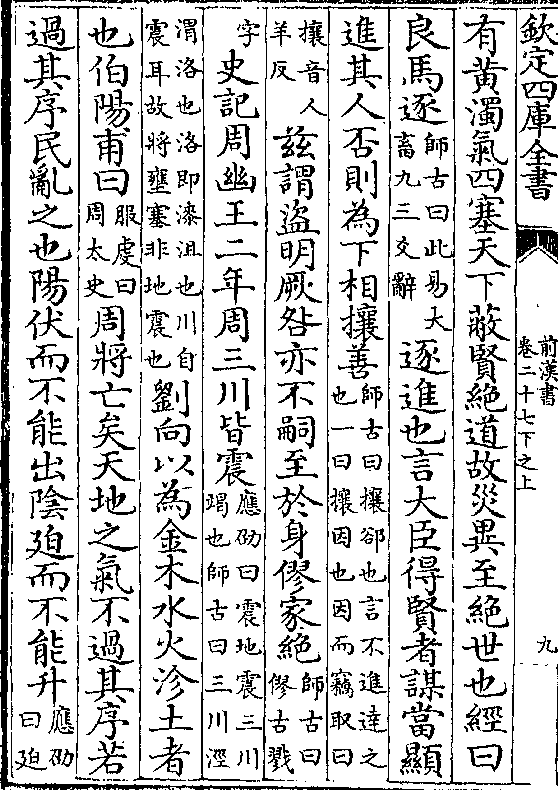 欽定四庫全書
前漢書
卷二十七下之上
九
有黃濁氣四塞天下蔽賢絶道故災異至絶世也經曰
良馬逐師古曰此易大畜九三爻辭逐進也言大臣得賢者謀當顯
進其人否則為下相攘善師古曰攘卻也言不進達之也一曰攘因也因而竊取曰
攘音人羊反兹謂盜明厥咎亦不嗣至於身僇家絶師古曰僇古戮
字史記周幽王二年周三川皆震應劭曰震地震三川竭也師古曰三川涇
渭洛也洛即漆沮也川自震耳故將壅塞非地震也劉向以為金木水火沴土者
也伯陽甫曰服虔曰周太史周將亡矣天地之氣不過其序若
過其序民亂之也陽伏而不能出陰廹而不能升應劭曰廹